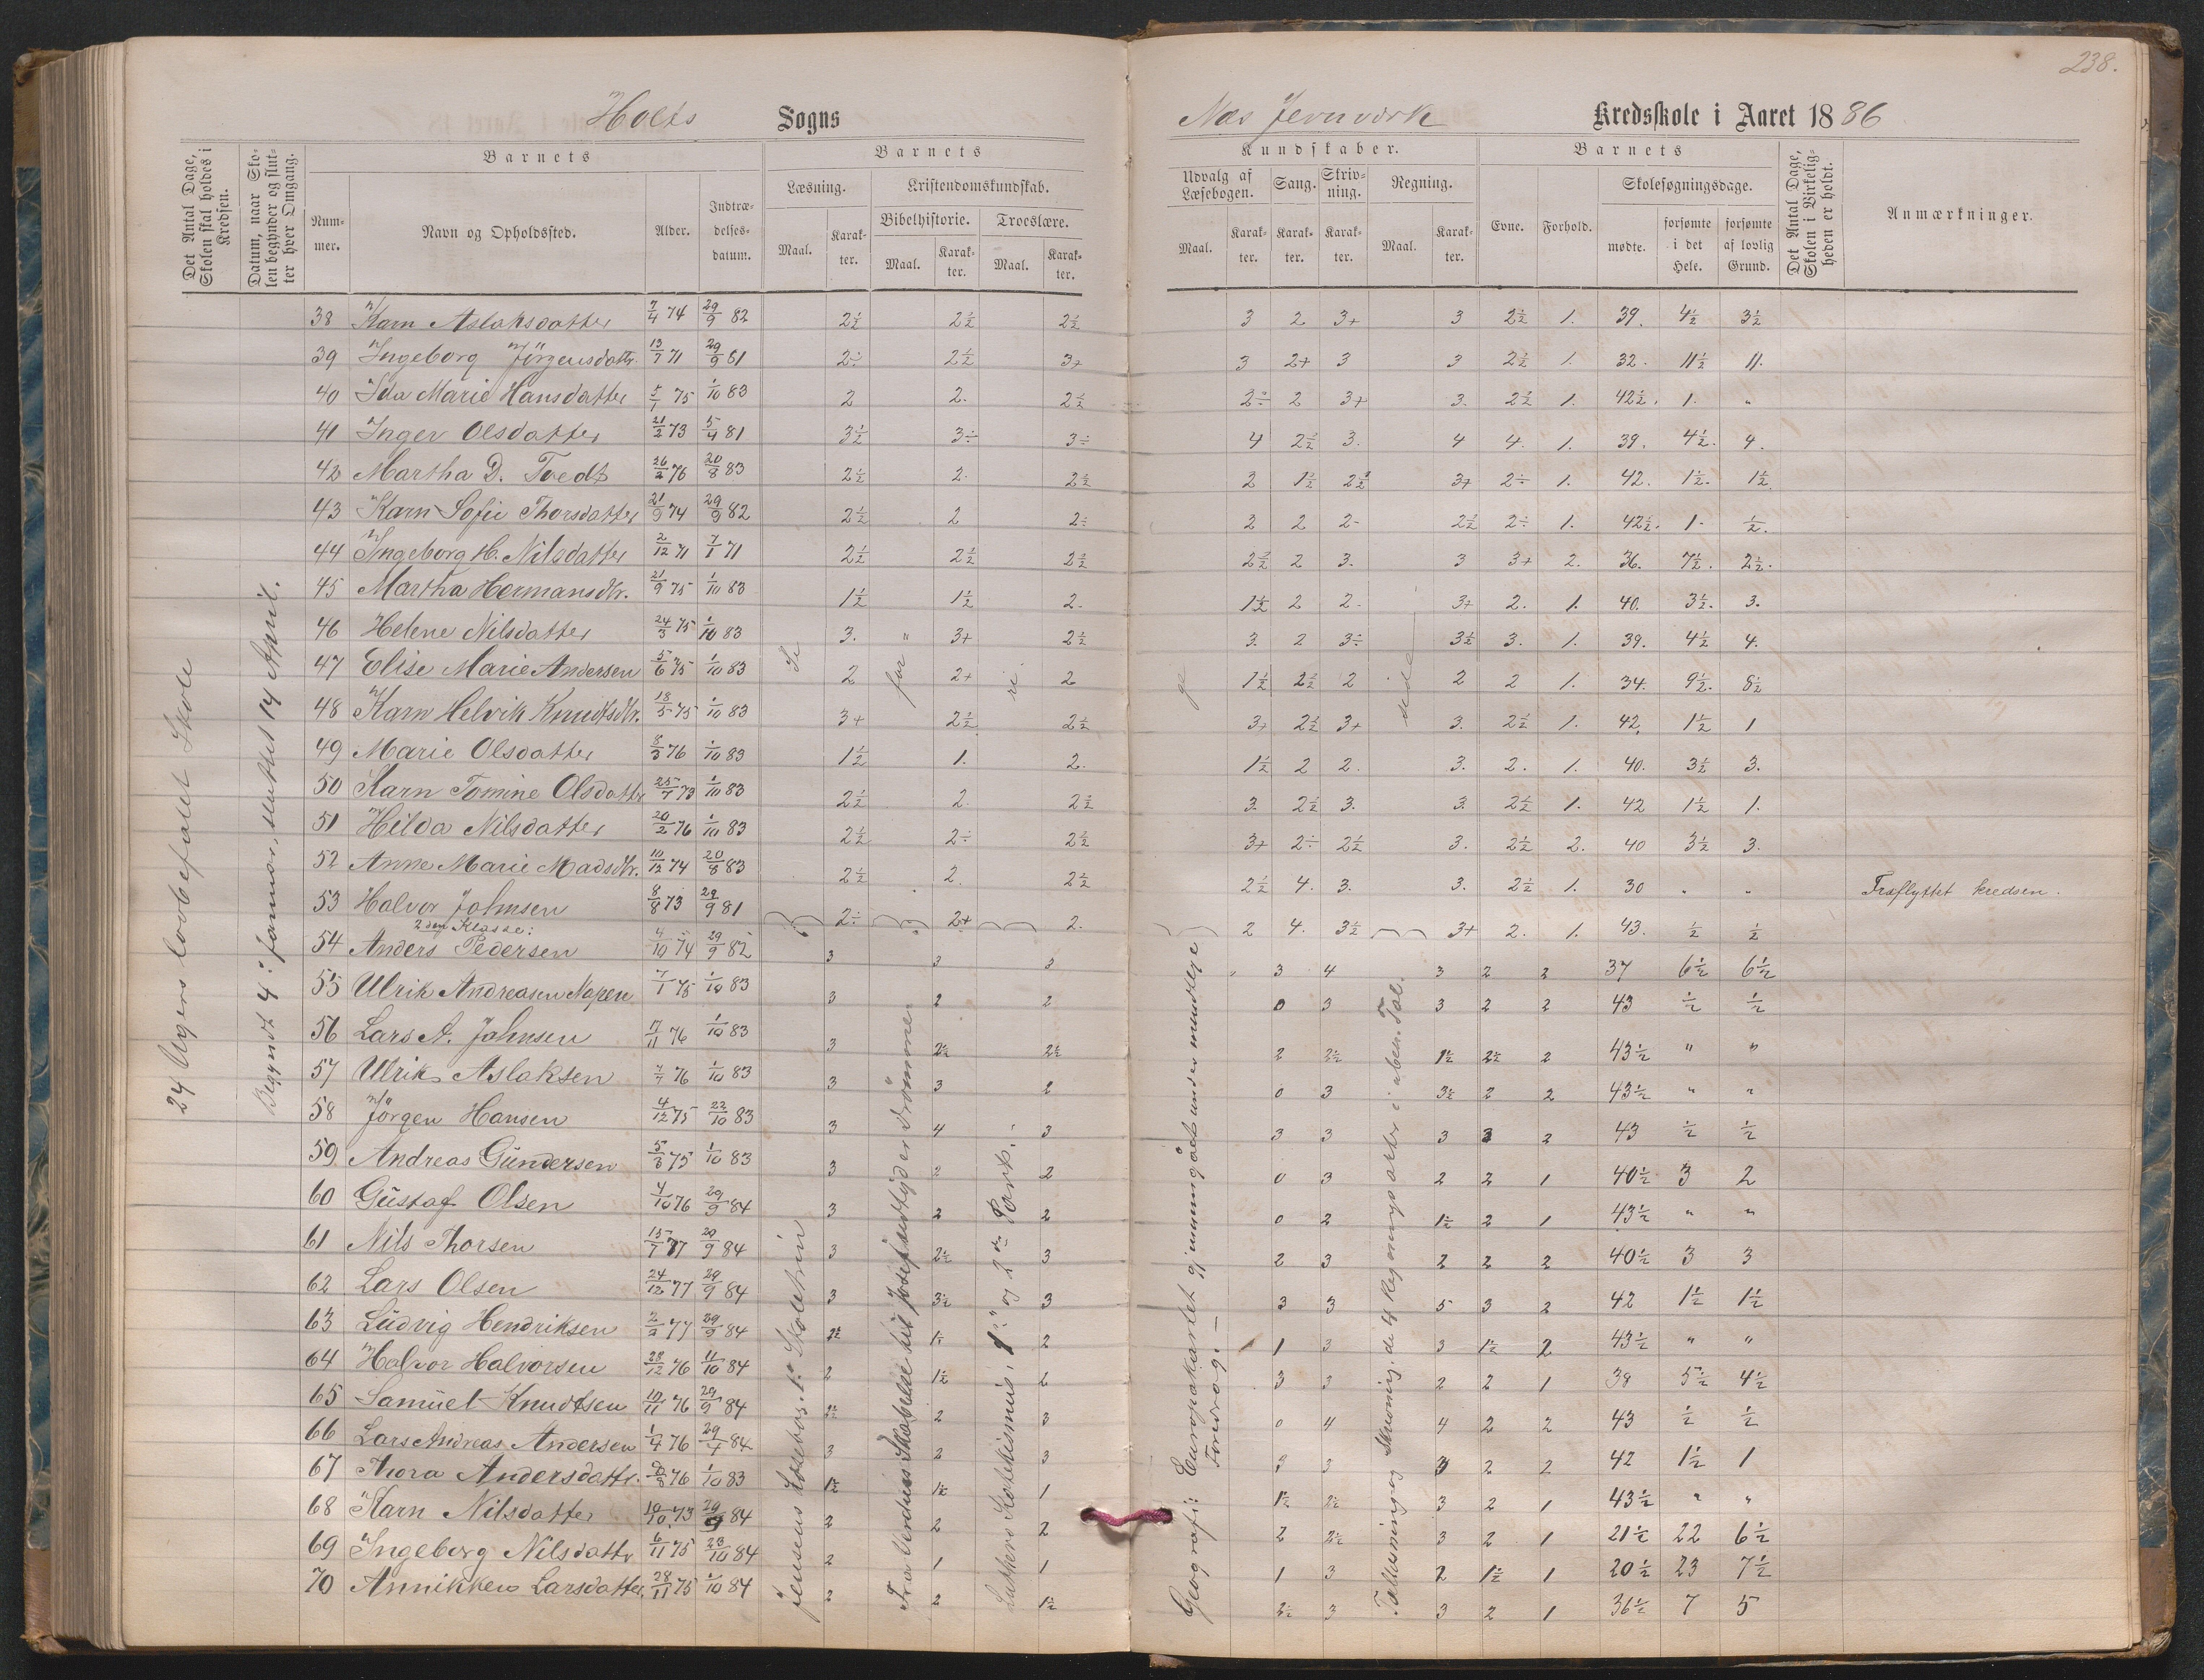 238.
Holts Sogns Næs Jernværk Kredsskole i Aaret 1886
Det Antal Dage, Skolen skal holdes i Kredsen.
Datum, naar Skolen begynder og slutter hver Omgang.
Barnets Barnets Kundskaber. Barnets
Det Antal Dage, Skolen i Virkeligheden er holdt.
Læsning. Kristendomskundskab. Udvalg af Læsebogen. Sang. Skrivning. Regning. Skolesøgningsdage.
Nummer. Navn og Opholdssted. Alder. Indtrædelsesdatum. Bibelhistorie. Troeslære. Evne. Forhold. mødte. forsømte i det Hele. forsømte af lovlig Grund. Anmærkninger.
Maal. Karakter. Maal. Karakter. Maal. Karakter. Maal. Karakter. Karakter. Karakter. Maal. Karakter.
24 Ugers lovbefalet Skole
Begyndt 4: Januar, sluttet 14 April.
38 Karn Aslaksdatter 7/4 74 29/9 82 2½ 2½ 2½ 3 2 3+ 3 2½ 1. 39. 4½ 3½
39 Ingeborg Jörgensdatter 13/7 71 29/9 81 2÷ 2½ 3+ 3 2+ 3 3 2½ 1. 32. 11½ 11.
40 Ida Marie Hansdatter 5/1 75 1/10 83 2 2. 2½ 2÷ 2 3+ 3. 2½ 1. 42½. 1. "
41 Inger Olsdatter 21/2 73 5/4 81 3½ 3÷ 3÷ 4 2½ 3. 4 4. 1. 39. 4½. 4.
42 Martha D. Tvedt 26/2 76 20/8 83 2½ 2. 2½ 2 1½ 2½ 3+ 2÷ 1. 42. 1½. 1½
43 Karn Sofie Thorsdatter 21/9 74 29/9 82 2½ 2 2÷ 2 2 2- 2½ 2÷ 1. 42½. 1. ½.
44 Ingeborg H. Nilsdatter 2/12 71 7/1 71 2½ 2½ 2½ 2½ 2 3. 3 3+ 2. 36. 7½. 2½.
45 Martha Hermansdtr. 21/9 75 1/10 83 1½ 1½ 2. 1½ 2 2. 3+ 2. 1. 40. 3½. 3.
46 Helene Nilsdatter 24/3 75 1/10 83 3. " 3+ 2½ 3. 2 3÷ 3½ 3. 1. 39. 4½ 4.
47 Elise Marie Andersen 5/6 75 1/10 83 Se 2 for 2+ ri 2 ge 1½ 2½ 2 side 2 2 1. 34. 9½. 8½
48 Karn Helvik Knudtsdtr. 18/5 75 1/10 83 3+ 2½ 2½ 3+ 2½ 3+ 3. 2½ 1. 42, 1½ 1
49 Marie Olsdatter 8/3 76 1/10 83 1½ 1. 2. 1½ 2 2. 3. 2. 1. 40. 3½ 3.
50 Karn Tomine Olsdatter 25/7 73 1/10 83 2½ 2. 2½ 3. 2½ 3. 3. 2½ 1. 42 1½ 1.
51 Hilda Nilsdatter 20/2 76 1/10 83 2½ 2÷ 2½ 3+ 2÷ 2½ 3. 2½ 2. 40 3½ 3.
52 Anne Marie Madsdtr. 10/12 74 20/8 83 2½ 2. 2½ 2½ 4. 3. 3. 2½ 1. 30 " " Fraflyttet kredsen.
53 Halvor Johnsen 8/8 73 29/9 81 2÷ 2+ 2. 2 4. 3½ 3+ 2. 1. 43. ½ ½
2den Klasse:
54 Anders Pedersen 4/10 74 29/9 82 3 3 3 " 3 4 3 2 2 37 6½ 6½
55 Ulrik Andreasen Napen 7/1 75 1/10 83 3 2 2 0 3 3 2 2 43 ½ ½
56 Lars A. Johnsen 17/11 76 1/10 83 3 2½ 2½ 2 2½ 1½ 2½ 2 43½ " "
57 Ulrik Aslaksen 7/7 76 1/10 83 3 3 2 0 3 3½ 2 2 43½ " "
58 Jörgen Hansen 4/12 75 22/10 83 3 4 3 3 3 3 3 2 43 ½ ½
59 Andreas Gundersen 5/3 75 1/10 83 3 2 2 0 3 2 2 1 40½ 3 2
60 Gustaf Olsen 4/10 76 29/9 84 3 2 2 0 2 1½ 2 1 43½ " "
61 Nils Thorsen 15/7 77 29/9 84 3 2½ 3 2 3 2 2 2 40½ 3 3
62 Lars Olsen 24/12 77 29/9 84 3 3½ 3 3 3 5 3 2 42 1½ 1½
63 Ludvig Hendriksen 2/2 77 29/9 84 2½ 1½ 2 1 3 3 1½ 2 43½ " "
64 Halvor Halvorsen 28/12 76 11/10 84 2 1½ 2 3 3 2 2 1 38 5½ 4½
65 Samuel Knudtsen 10/11 76 29/9 84 2½ 2 3 0 4 4 2 2 43 ½ ½
66 Lars Andreas Andersen 1/4 76 29/4 84 3 2 3 3 3 3 2 2 42 1½ 1
67 Thora Andersdatter. 8/8 76 1/10 83 1½ 1½ 1 1½ 2½ 3 2 1 43½ " "
68 Karn Nilsdatter 10/10 73 29/9 84 2 2 2 2 2½ 3 2 1 21½ 22 6½
69 Ingeborg Nilsdatter 6/11 75 23/10 84 2 1 1 1 3 2 1½ 1 20½ 23 7½
70 Anniken Larsdatter, 28/11 75 1/10 84 2 2 1½ 2½ 3 3 2 1 36½ 7 5
Jensens Læsebog. 1: Skoletrin
Fra Verdens Skabelse til Josef udtyder drömmene
Luthers Katekismus, 1ste og 2den Part.
Geografi: Europakartet gjennemgået under mundtlige Foredrag. —
Tallæsning og Skrivning. de 4 Regningsarter i uben. Tal.